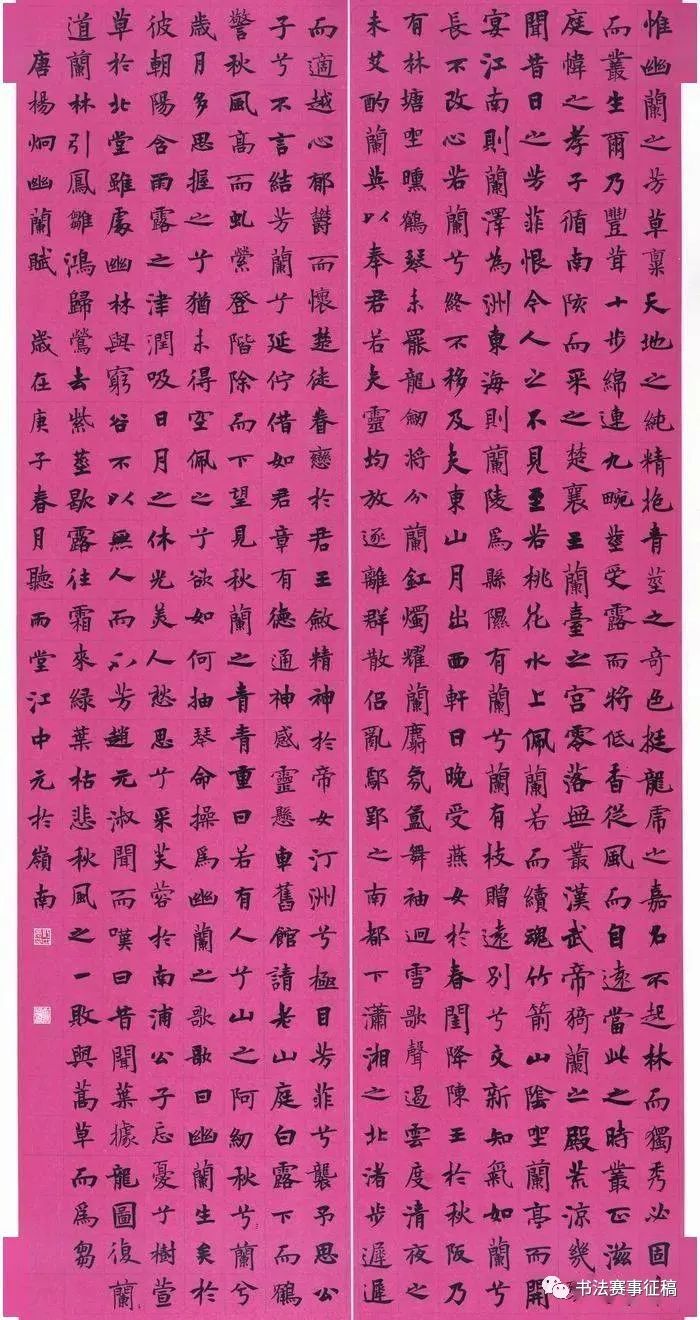 惟幽蘭之芳草稟天地之純精抱青莖之奇色挺龍虎之嘉名不起林而獨秀必固
而叢生爾乃豐茸十步綿連九畹莖受露而將低香從風而自遠當此之時叢正滋
庭幃之孝子循南陔而采之楚襄王蘭臺之宮零落無叢漢武帝猗蘭之殿荒涼幾
聞昔日之芳菲恨今人之不見至若桃花水上佩蘭若而續魂竹箭山陰坐蘭亭而開
宴江南則蘭澤為洲東海則蘭陵爲縣隰有蘭兮蘭有枝贈遠別兮交新知氣如蘭兮
長不改心若蘭兮終不移及夫東山月出西軒日晚受燕女於春閨降陳王於秋阪乃
有林塘坐曛鶴琴未罷龍劒將分蘭釭燭耀蘭麝氛氳舞袖迴雪歌聲遏雲度清夜之
未艾酌蘭英以奉君若夫靈均放逐離群散侶亂鄢郢之南都下瀟湘之北渚步遲遲
而適越心郁鬱而懷楚徒眷戀於君王斂精神於帝女汀洲兮極目芳菲兮襲予思公
子兮不言結芳蘭兮延佇借如君章有德通神感靈懸車舊館請老山庭白露下而鶴
警秋風高而虬縈登階除而下望見秋蘭之青青重曰若有人兮山之阿紉秋兮蘭兮
歲月多思握之兮猶未得空佩之兮欲如何抽琴命操爲幽蘭之歌歌曰幽蘭生矣於
彼朝陽含雨露之津潤吸日月之休光美人愁思兮采芙蓉於南浦公子忘憂兮樹萱
草於北堂雖處幽林與窮谷不以無人而不芳趙元淑聞而嘆曰昔聞葉據龍圖復蘭
道蘭林引鳳雛鴻歸鶯去紫莖歇露往霜來綠葉枯悲秋風之一敗與蒿草而爲芻
唐楊炯幽蘭賦 歲在庚子春月聽雨堂江中元於嶺南
书法赛事征稿